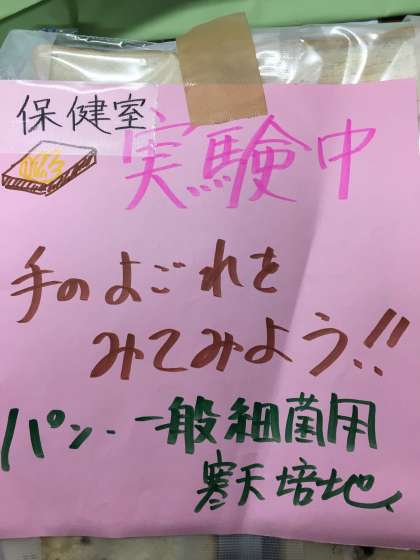 保健室
実験中
手のよごれを
みてみよう!!
パン・一般細菌用
寒天培地